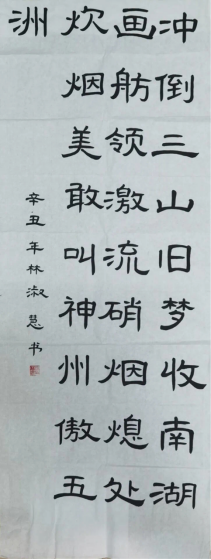 冲倒三山旧梦收南湖
画舫领激流硝烟熄处
炊烟美敢叫神州傲五
洲
辛丑年林淑慧书